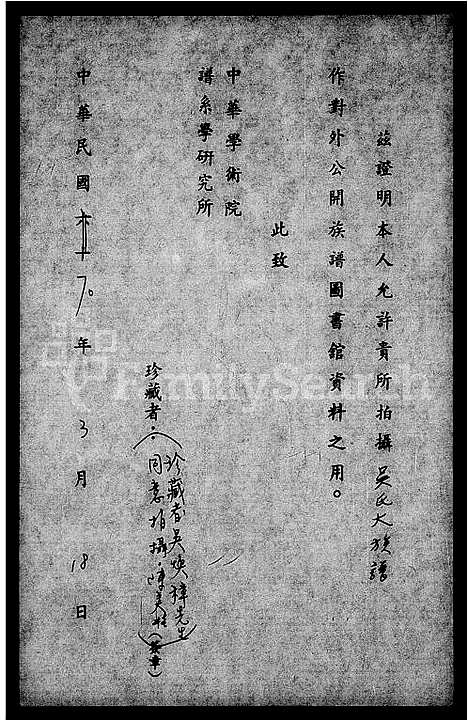 茲證明本人允許貴所拍攝吳氏大族譜
作對外公開族譜圖書館資料之用。
此致
中華學術院
譜系學研究所
珍藏者：
珍藏者吳煥樟先生
同意拍攝
(簽章)
中華民國70年3月18日
FamilySearch